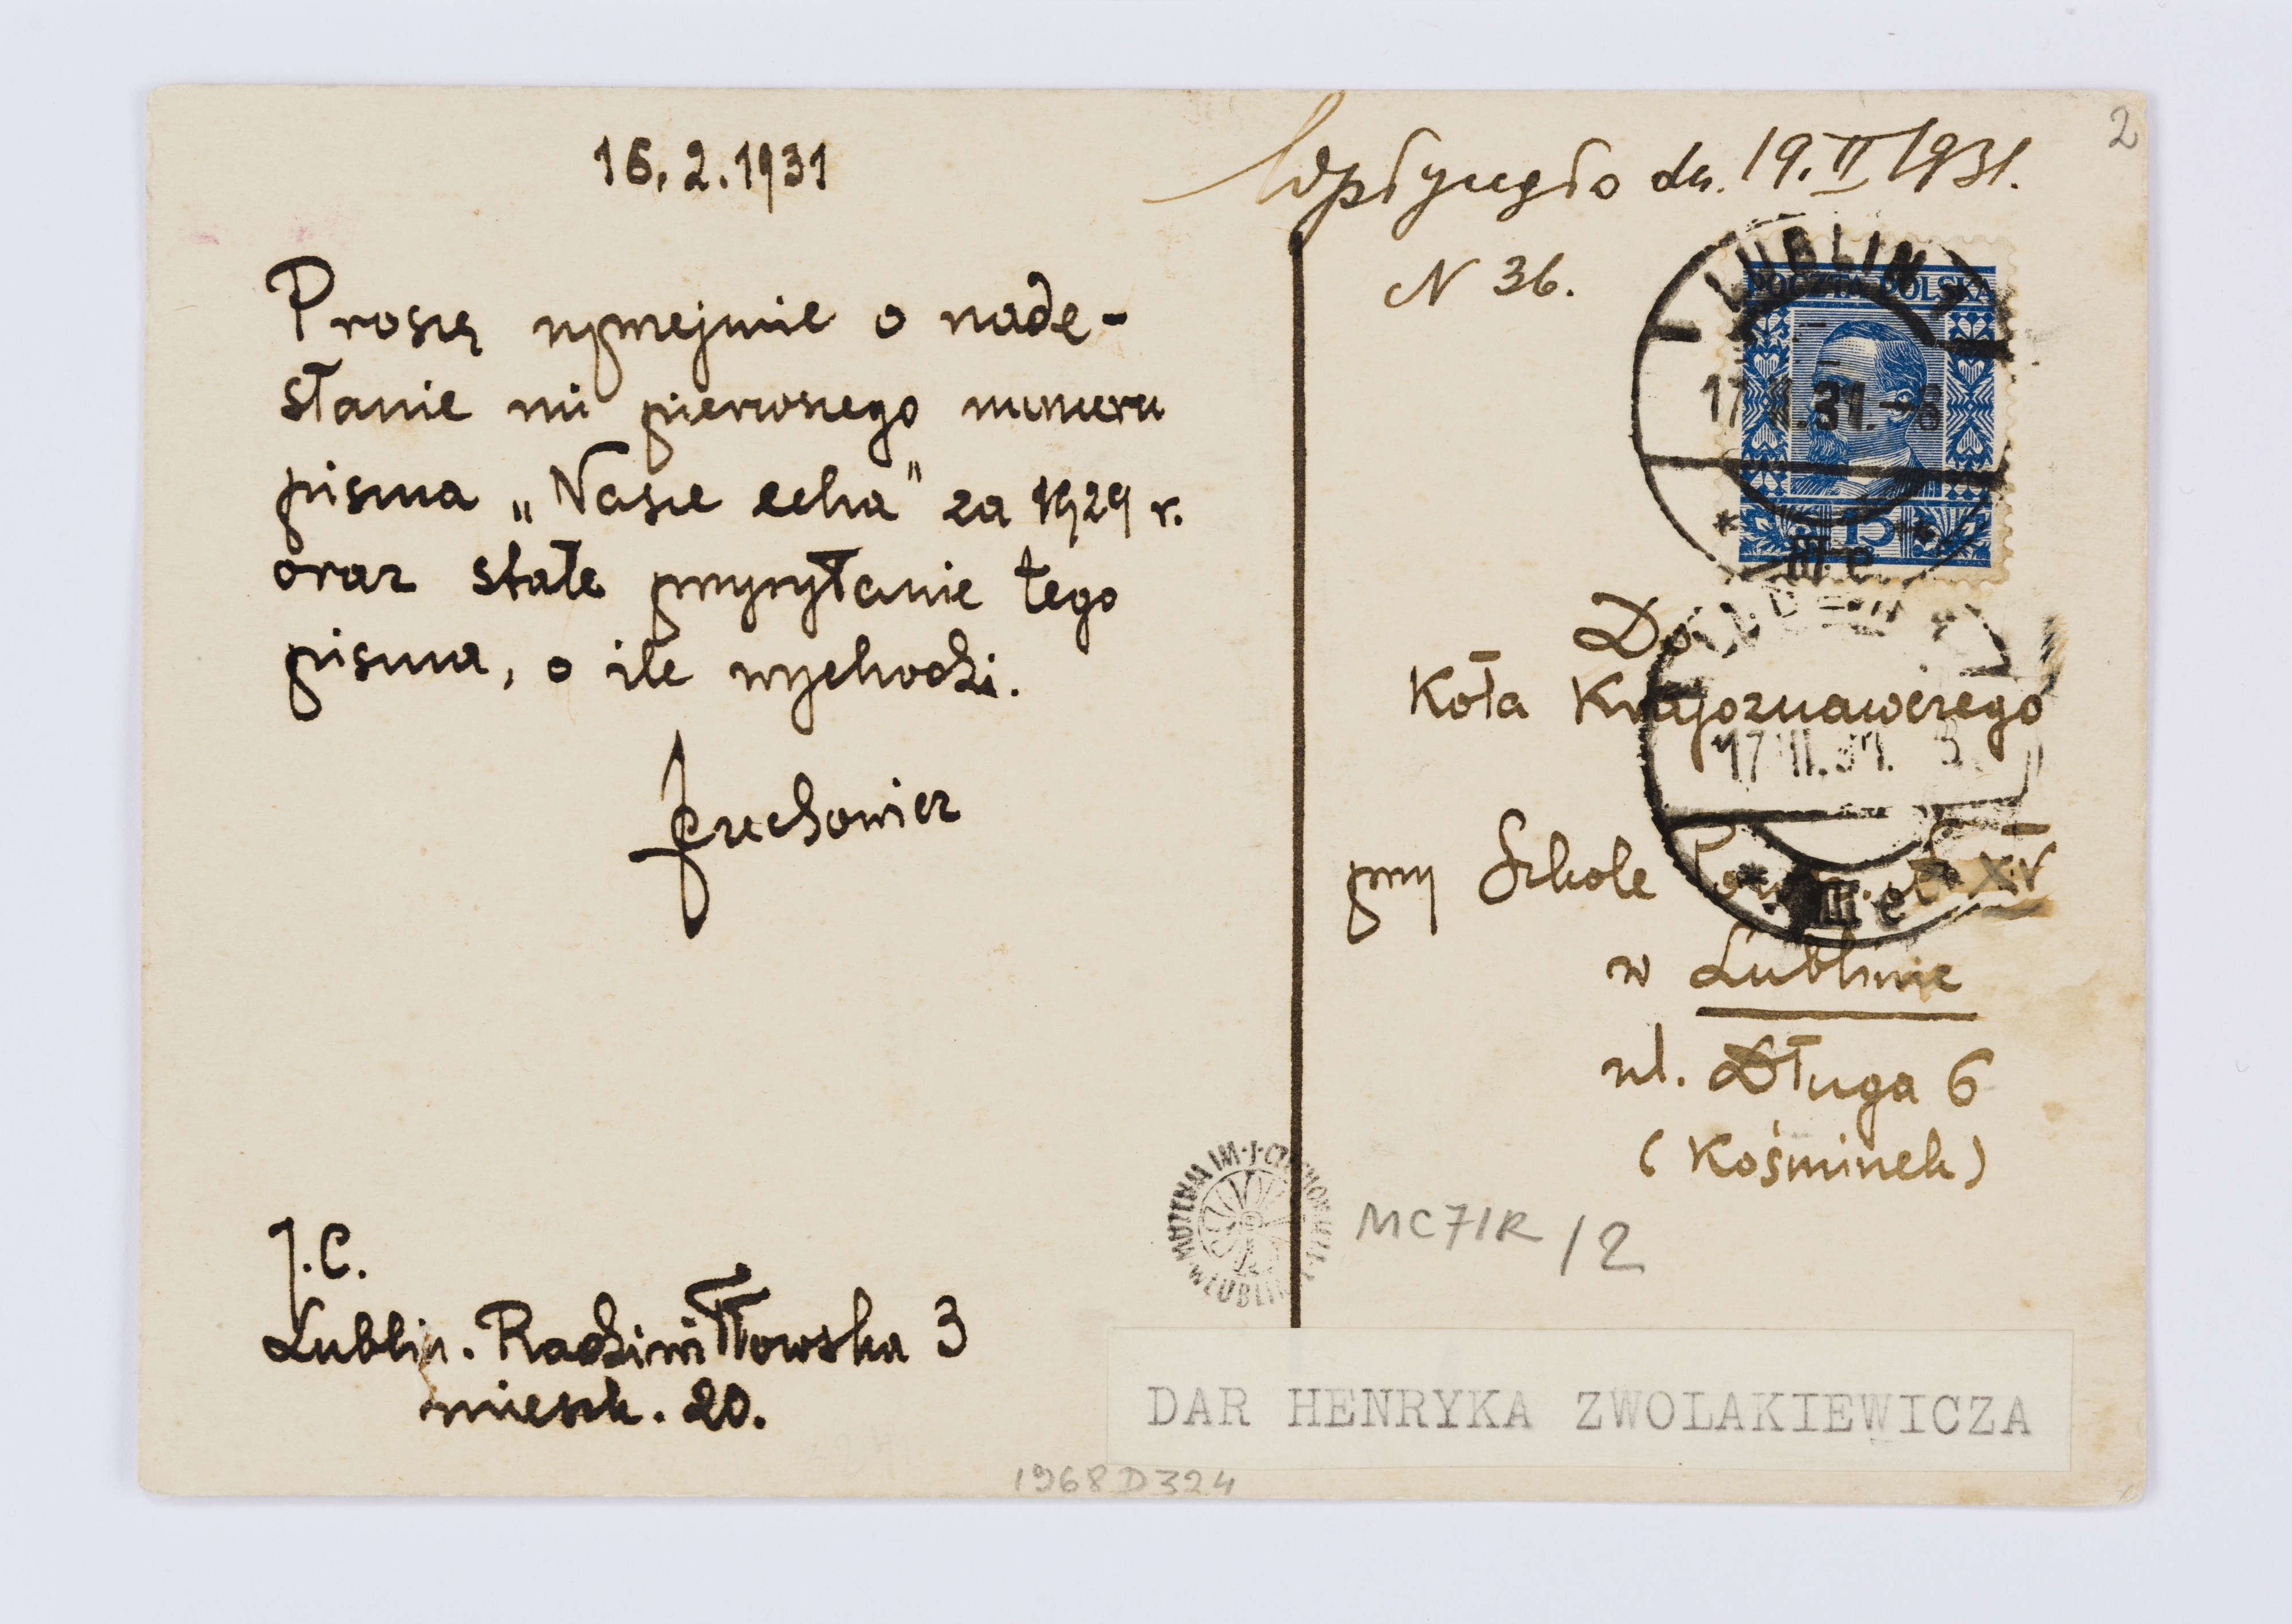 16.2.1931
Proszę uprzejmie o nade-
słanie mi pierwszego numeru
pisma „Nasze echa" za 1929 r.
oraz stałe przysyłanie tego
pisma, o ile wychodzi.
JCzechowicz
J.C.
Lublin. Radziwiłłowska 3
mieszk. 20.
Wpłynęło dn. 19.II 1931.
N 36.
2
LUBLIN
POCZTA POLSKA
17.II.31.-8
15
III e
Do
Koła Krajoznawczego
17 II.31.
przy Szkole
III e
w Lublinie
ul. Długa 6
(Kośminek)
MC71R/2
DAR HENRYKA ZWOLAKIEWICZA
1968D324